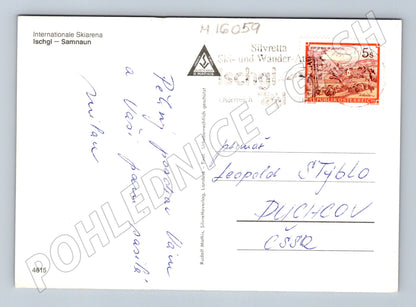 H 16059
Internationale Skiarena
Ischgl – Samnaun
Silvretta
Ski- und Wander-
ischgl
5s
REPUBLIK ÖSTERREICH
Pěkný pozdrav Vám
a Vaší paní posílá
milan
primář
Leopold STÝBLO
DUCHCOV
ČSSR
Rudolf Mathis, Silvrettaverlag, Landeck – Tirol
4815
POHLEDNICE